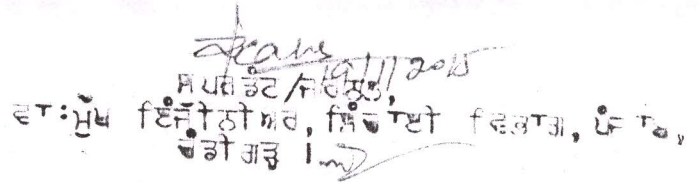 19/1/2015
ਸੁਪਰਡੰਟ/ਜਨਰਲ,
ਵਾ:ਮੁੱਖ ਇੰਜੀਨੀਅਰ, ਸਿੰਚਾਈ ਵਿਭਾਗ, ਪੰਜਾਬ,
ਚੰਡੀਗੜ੍ਹ ।